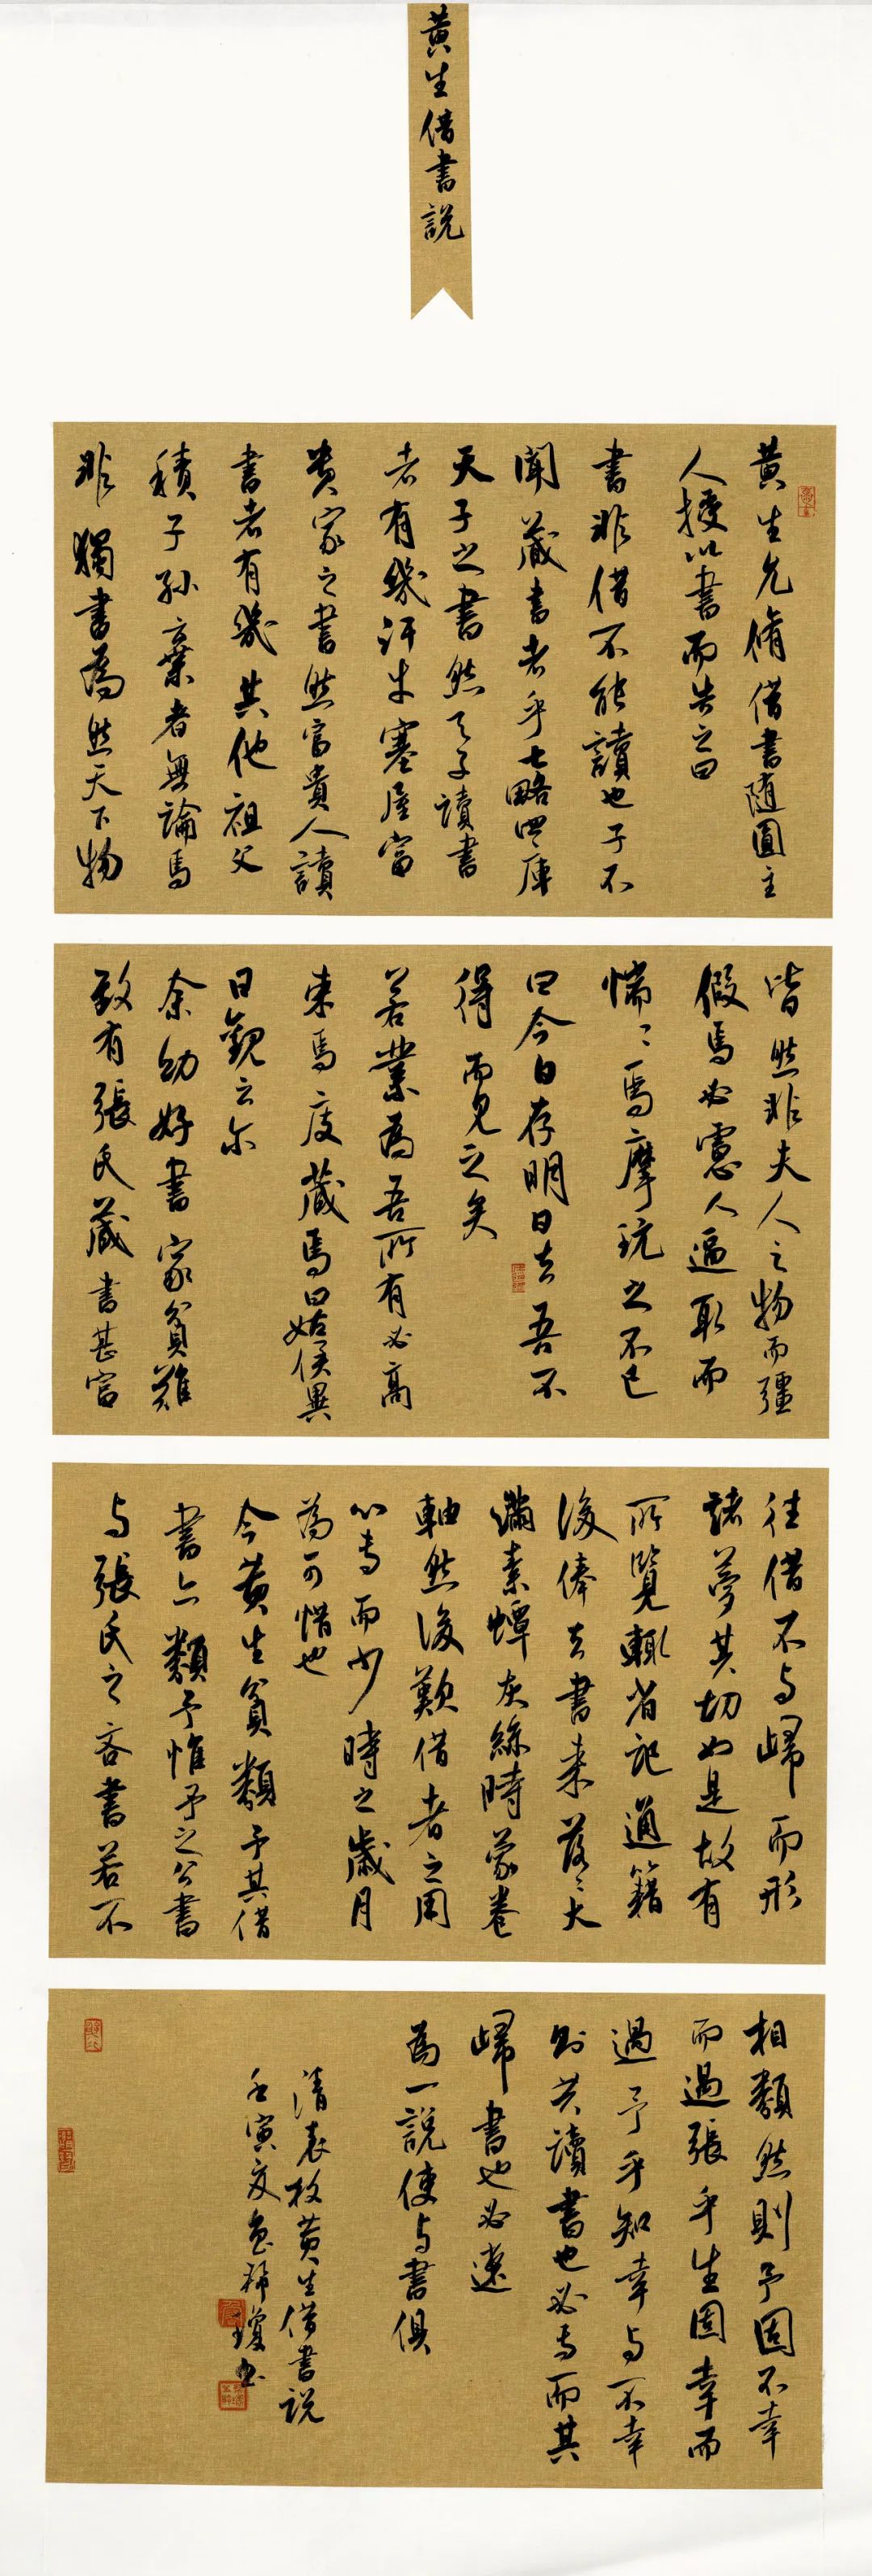 黄生借書説
黄生允脩借書随園主
人授以書而告之曰
書非借不能讀也子不
聞藏書者乎七略四庫
天子之書然天子讀書
者有幾汗牛塞屋富
貴家之書然富貴人讀
書者有幾其他祖父
積子孫棄者無論焉
非獨書為然天下物
皆然非夫人之物而彊
假焉必慮人逼取而
惴々焉摩玩之不已
曰今日存明日去吾不
得而見之矣
若業為吾所有必高
束焉庋藏焉曰姑俟異
日觀云尔
余幼好書家貧難
致有張氏藏書甚富
往借不与歸而形
諸夢其切如是故有
所覽輒省記通籍
後俸去書来落々大
滿素蟫灰絲時蒙卷
軸然後歎借者之用
心專而少時之歲月
為可惜也
今黄生貧類予其借
書亦類予惟予之公書
与張氏之吝書若不
相類然則予固不幸
而遇張乎生固幸而
遇予乎知幸与不幸
則其讀書也必專而其
歸書也必速
為一説使与書俱
清袁枚黄生借書説
壬寅夏
瓊書